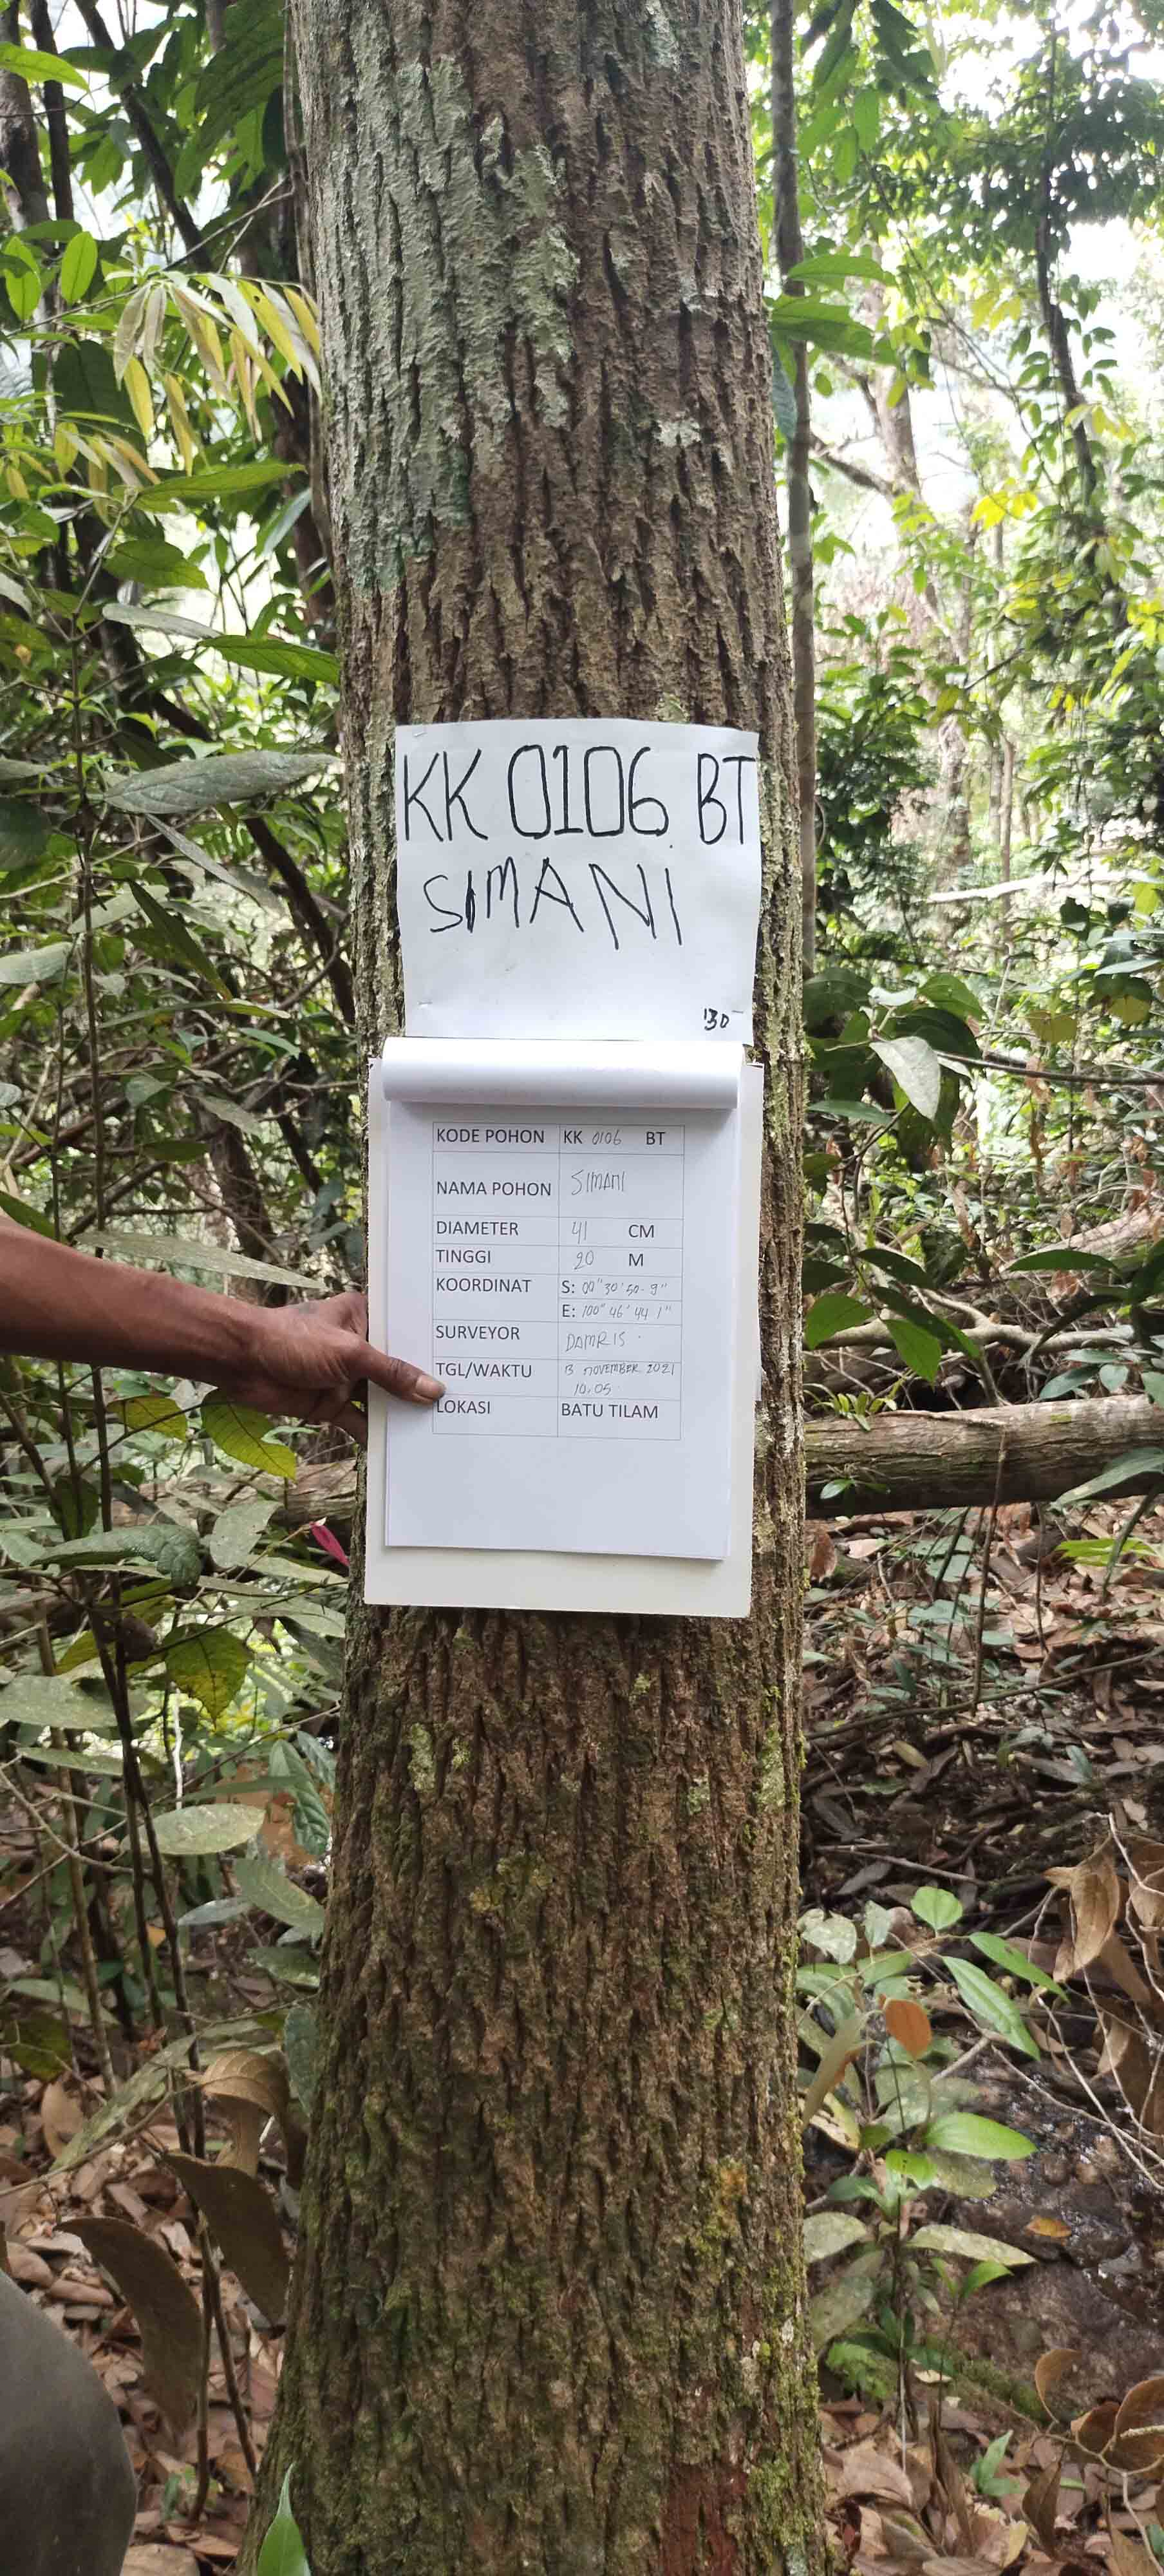 KK 0106 BT
SIMANI
130
KODE POHON KK 0106 BT
NAMA POHON SIMANI
DIAMETER 41 CM
TINGGI 20 M
KOORDINAT S: 00" 30' 50.9"
E: 100" 46' 44 1"
SURVEYOR DAMRIS.
TGL/WAKTU 13 NOVEMBER 2021
10.05
LOKASI BATU TILAM